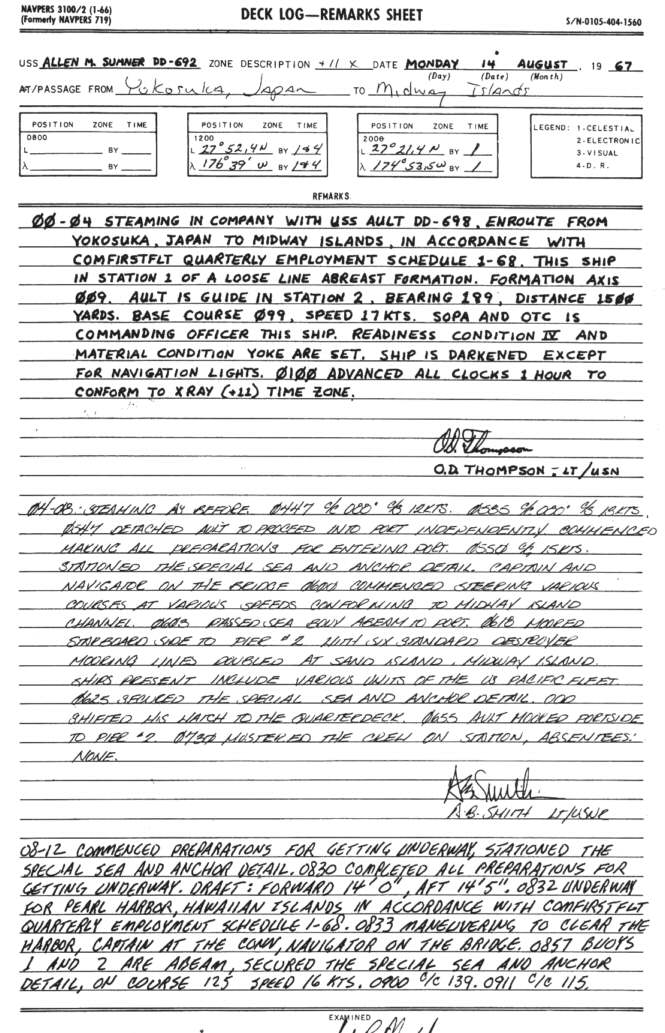 NAVPERS 3100/2 (1-66)
(Formerly NAVPERS 719)
DECK LOG—REMARKS SHEET
S/N-0105-404-1560
USS ALLEN M. SUMNER DD-692 ZONE DESCRIPTION +11 X DATE MONDAY 14 AUGUST, 19 67
(Day) (Date) (Month)
AT/PASSAGE FROM Yokosuka, Japan TO Midway Islands
POSITION ZONE TIME
0800
L BY
λ BY
POSITION ZONE TIME
1200
L 27°52,4N BY 1+4
λ 176°39' W BY 1+4
POSITION ZONE TIME
2000
L 27°21,4N BY 1
λ 174°53,5W BY 1
LEGEND: 1-CELESTIAL
2-ELECTRONIC
3-VISUAL
4-D. R.
REMARKS
ØØ-Ø4 STEAMING IN COMPANY WITH USS AULT DD-698, ENROUTE FROM
YOKOSUKA, JAPAN TO MIDWAY ISLANDS, IN ACCORDANCE WITH
COMFIRSTFLT QUARTERLY EMPLOYMENT SCHEDULE 1-68. THIS SHIP
IN STATION 1 OF A LOOSE LINE ABREAST FORMATION. FORMATION AXIS
ØØ9. AULT IS GUIDE IN STATION 2, BEARING 189, DISTANCE 15ØØ
YARDS. BASE COURSE Ø99, SPEED 17KTS. SOPA AND OTC IS
COMMANDING OFFICER THIS SHIP. READINESS CONDITION IV AND
MATERIAL CONDITION YOKE ARE SET. SHIP IS DARKENED EXCEPT
FOR NAVIGATION LIGHTS. Ø1ØØ ADVANCED ALL CLOCKS 1 HOUR TO
CONFORM TO XRAY (+11) TIME ZONE.
O.D. Thompson
O.D. THOMPSON - LT/USN
Ø4-Ø8: STEAMING AS BEFORE. Ø447 C/C 080° C/S 12KTS. Ø535 C/C C/S KTS.
Ø547 DETACHED AULT TO PROCEED INTO PORT INDEPENDENTLY COMMENCED
MAKING ALL PREPARATIONS FOR ENTERING PORT. Ø55Ø C/S 15KTS.
STATIONED THE SPECIAL SEA AND ANCHOR DETAIL. CAPTAIN AND
NAVIGATOR ON THE BRIDGE Ø6ØØ COMMENCED STEERING VARIOUS
COURSES AT VARIOUS SPEEDS CONFORMING TO MIDWAY ISLAND
CHANNEL. Ø6Ø3 PASSED SEA BOUY ABEAM TO PORT. Ø618 MOORED
STARBOARD SIDE TO PIER #2 WITH SIX STANDARD DESTROYER
MOORING LINES DOUBLED AT SAND ISLAND, MIDWAY ISLAND.
SHIPS PRESENT INCLUDE VARIOUS UNITS OF THE US PACIFIC FLEET.
Ø625 SECURED THE SPECIAL SEA AND ANCHOR DETAIL. OOD
SHIFTED HIS WATCH TO THE QUARTERDECK. Ø655 AULT MOORED PORTSIDE
TO PIER #2 Ø73Ø MUSTERED THE CREW ON STATION, ABSENTEES:
NONE.
A.B. Smith
A.B. SMITH LT/USNR
08-12 COMMENCED PREPARATIONS FOR GETTING UNDERWAY, STATIONED THE
SPECIAL SEA AND ANCHOR DETAIL. 0830 COMPLETED ALL PREPARATIONS FOR
GETTING UNDERWAY. DRAFT: FORWARD 14' 0", AFT 14'5". 0832 UNDERWAY
FOR PEARL HARBOR, HAWAIIAN ISLANDS IN ACCORDANCE WITH COMFIRSTFLT
QUARTERLY EMPLOYMENT SCHEDULE 1-68. 0833 MANEUVERING TO CLEAR THE
HARBOR, CAPTAIN AT THE CONN, NAVIGATOR ON THE BRIDGE. 0857 BUOYS
1 AND 2 ARE ABEAM, SECURED THE SPECIAL SEA AND ANCHOR
DETAIL, ON COURSE 125 SPEED 16 KTS. 0900 C/C 139. 0911 C/C 115.
EXAMINED